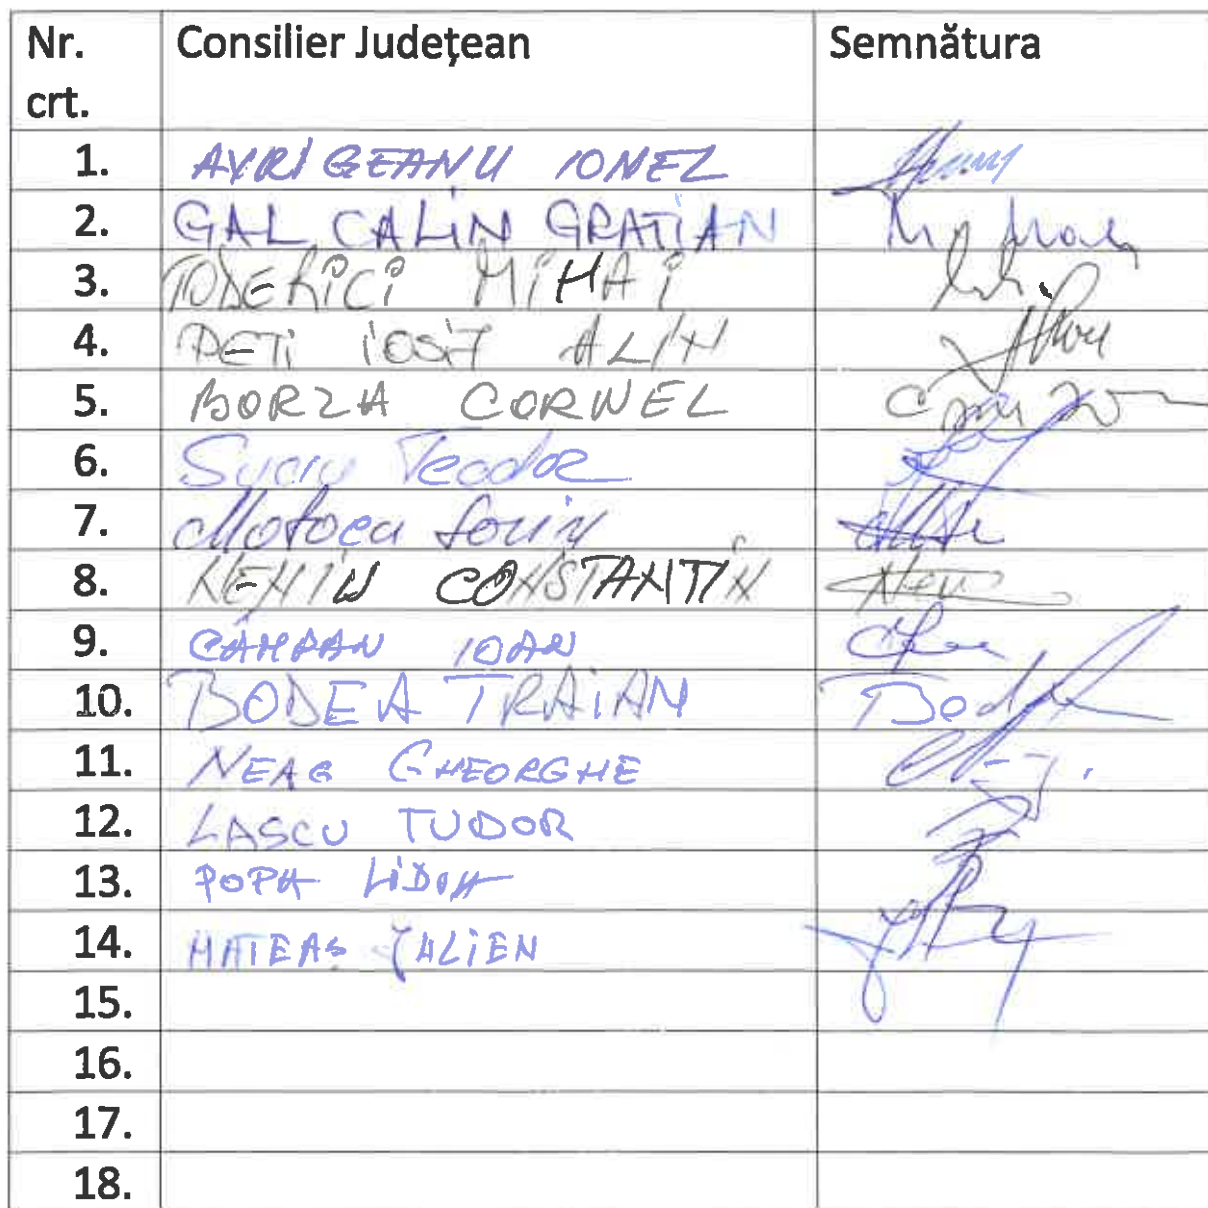 Nr. crt. Consilier Județean Semnătura
1. AVRIGEANU IONEL
2. GAL CALIN GRATIAN
3. TODERICI MIHAI
4. PETI IOSIF ALIN
5. BORZA CORNEL
6. Suciu Teodor
7. Motocu Sorin
8. NEMIŞ CONSTANTIN
9. CÂMPAN IOAN
10. BODEA TRAIAN
11. NEAG GHEORGHE
12. LASCU TUDOR
13. POPA LIDIA
14. MATEAS IULIEN
15.
16.
17.
18.